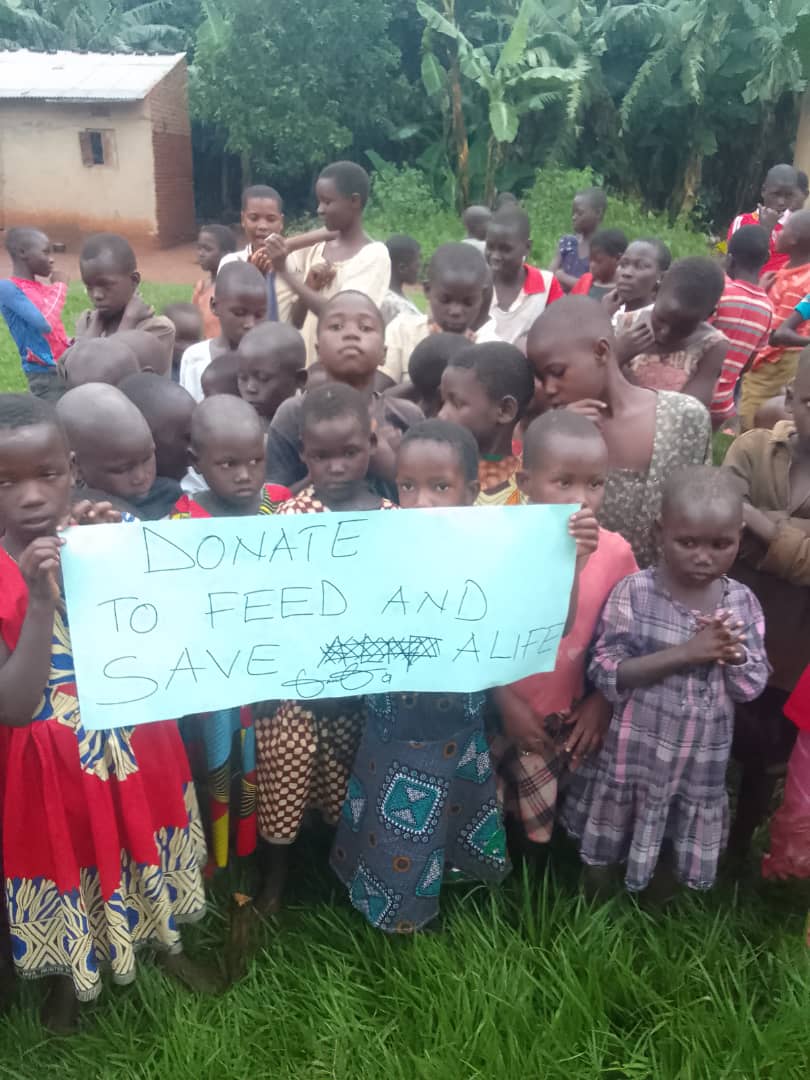 DONATE
TO FEED AND
SAVE A LIFE